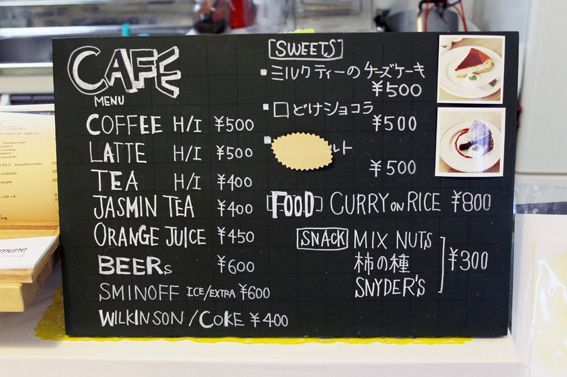 CAFE
MENU
COFFEE H/I ¥500
LATTE H/I ¥500
TEA H/I ¥400
JASMIN TEA ¥400
ORANGE JUICE ¥450
BEERS ¥600
SMINOFF ICE/EXTRA ¥600
WILKINSON/COKE ¥400
[SWEETS]
・ミルクティーのケーズケーキ
¥500
・口どけショコラ
¥500
ルト
¥500
[FOOD] CURRY ON RICE ¥800
[SNACK] MIX NUTS
柿の種 ¥300
SNYDER'S
mune